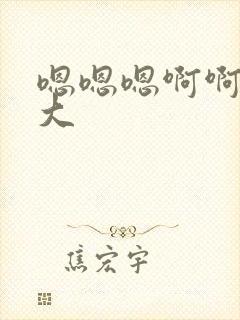 嗯嗯嗯啊啊
大
焦宏宇